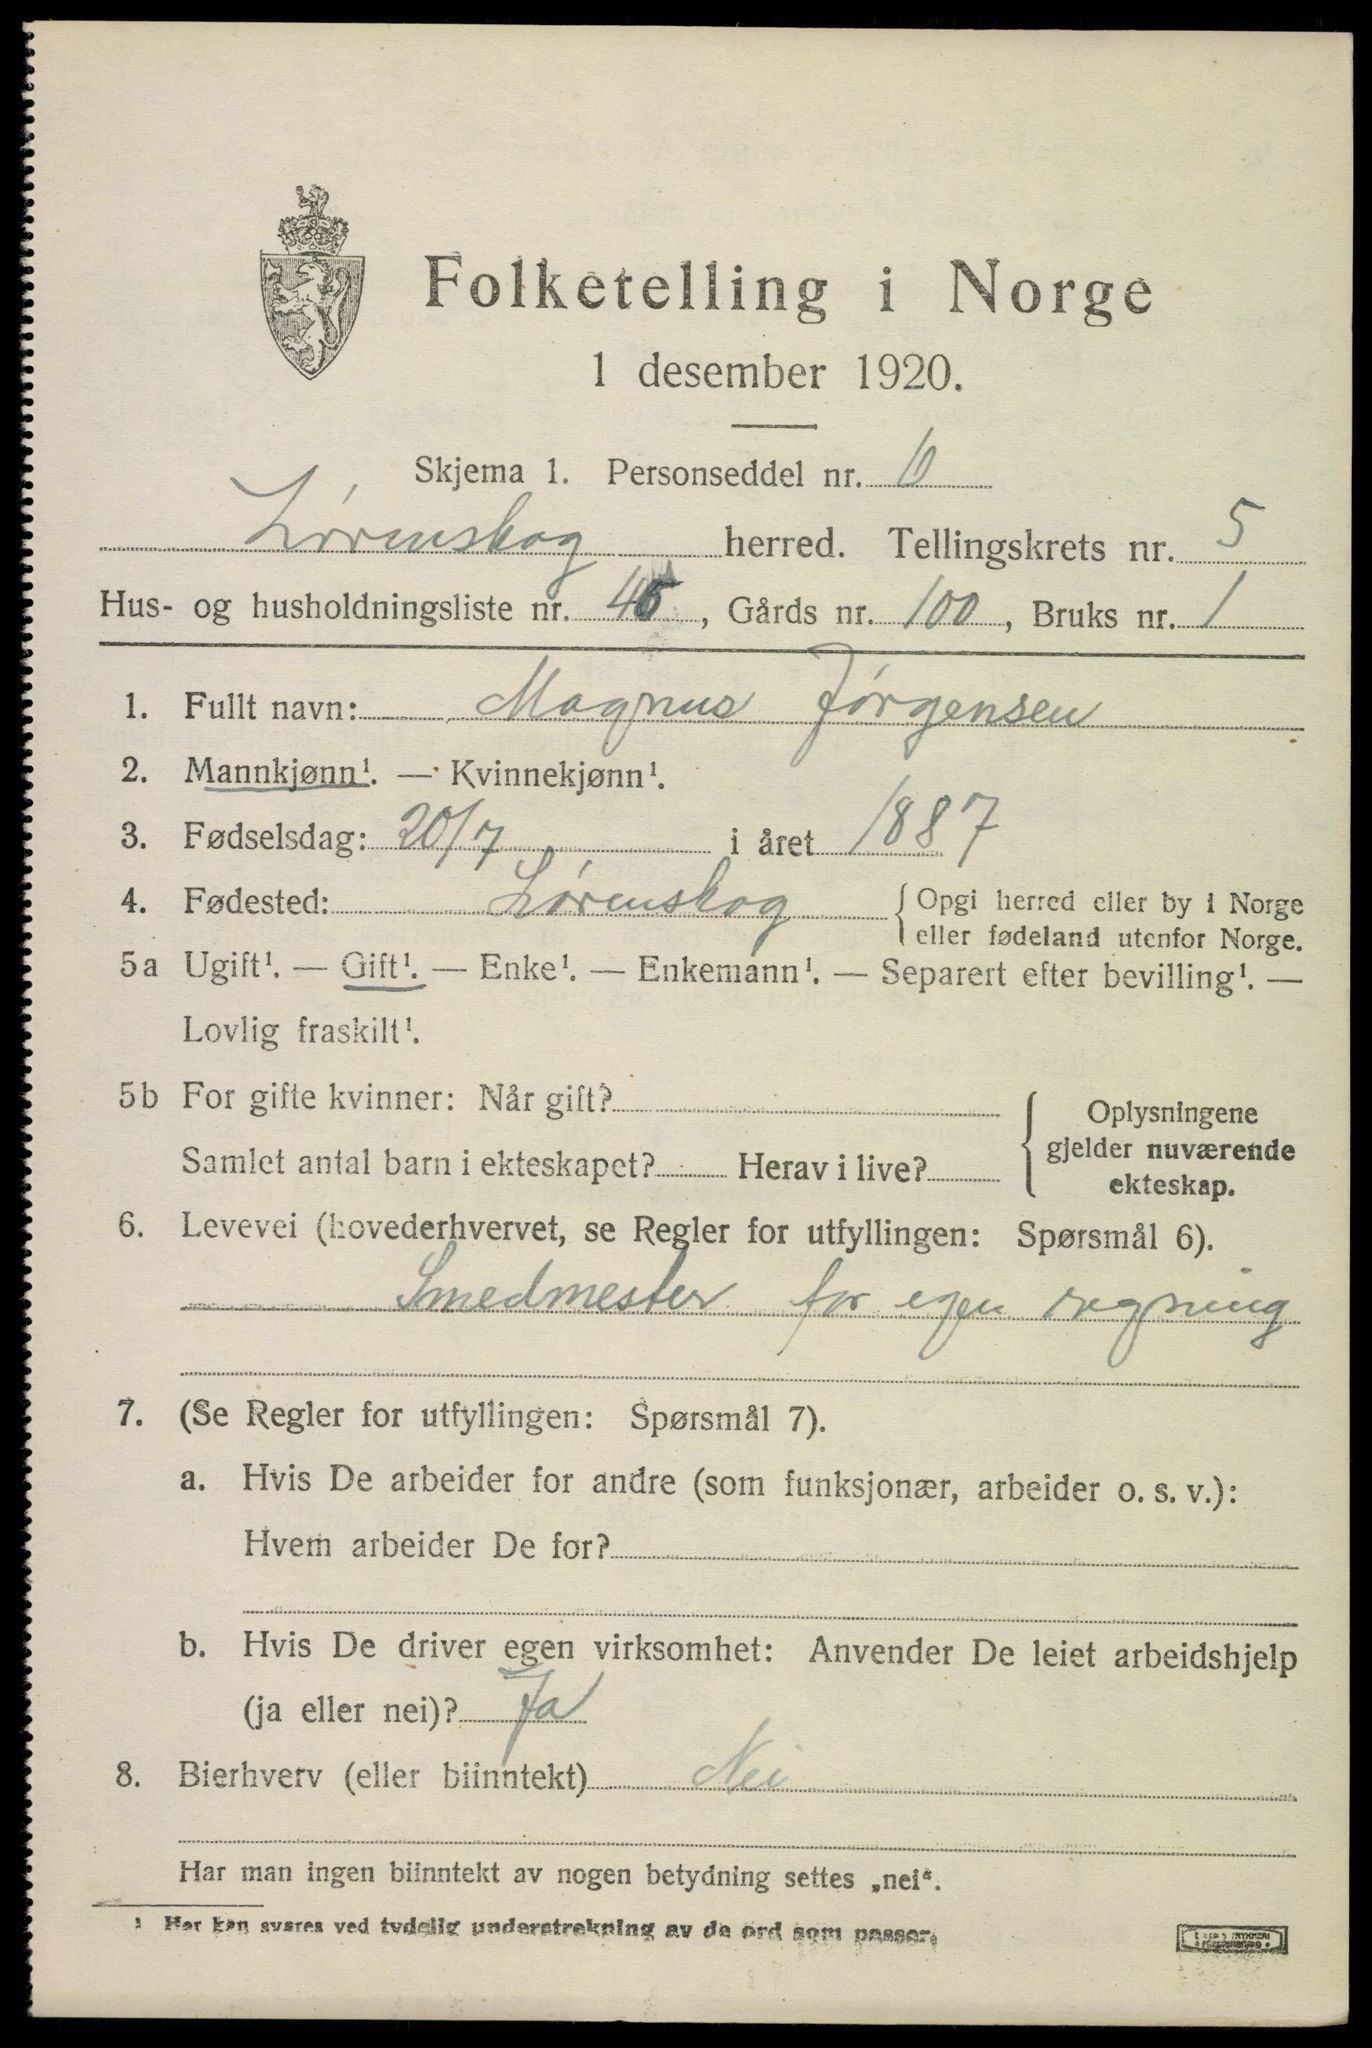 Folketelling i Norge
1 desember 1920.
Skjema 1. Personseddel nr. 10
Lørenskog herred. Tellingskrets nr. 5
Hus- og husholdningsliste nr. 46, Gårds nr. 100, Bruks nr. 1
1. Fullt navn: Magnus Jørgensen
2. Mannkjønn¹. — Kvinnekjønn¹.
3. Fødselsdag: 20/7 i året 1887
4. Fødested: Lørenskog { Opgi herred eller by i Norge
eller fødeland utenfor Norge.
5a Ugift¹. — Gift¹. — Enke¹. — Enkemann¹. — Separert efter bevilling¹. —
Lovlig fraskilt¹.
5b For gifte kvinner: Når gift?
Samlet antal barn i ekteskapet? Herav i live?
{ Oplysningene
gjelder nuværende
ekteskap.
6. Levevei (hovederhvervet, se Regler for utfyllingen: Spørsmål 6).
Smedmester for egen regning
7. (Se Regler for utfyllingen: Spørsmål 7).
a. Hvis De arbeider for andre (som funksjonær, arbeider o. s. v.):
Hvem arbeider De for?
b. Hvis De driver egen virksomhet: Anvender De leiet arbeidshjelp
(ja eller nei)? Ja
8. Bierhverv (eller biinntekt) Nei
Har man ingen biinntekt av nogen betydning settes „nei“.
¹ Her kan svares ved tydelig understrekning av de ord som passer.